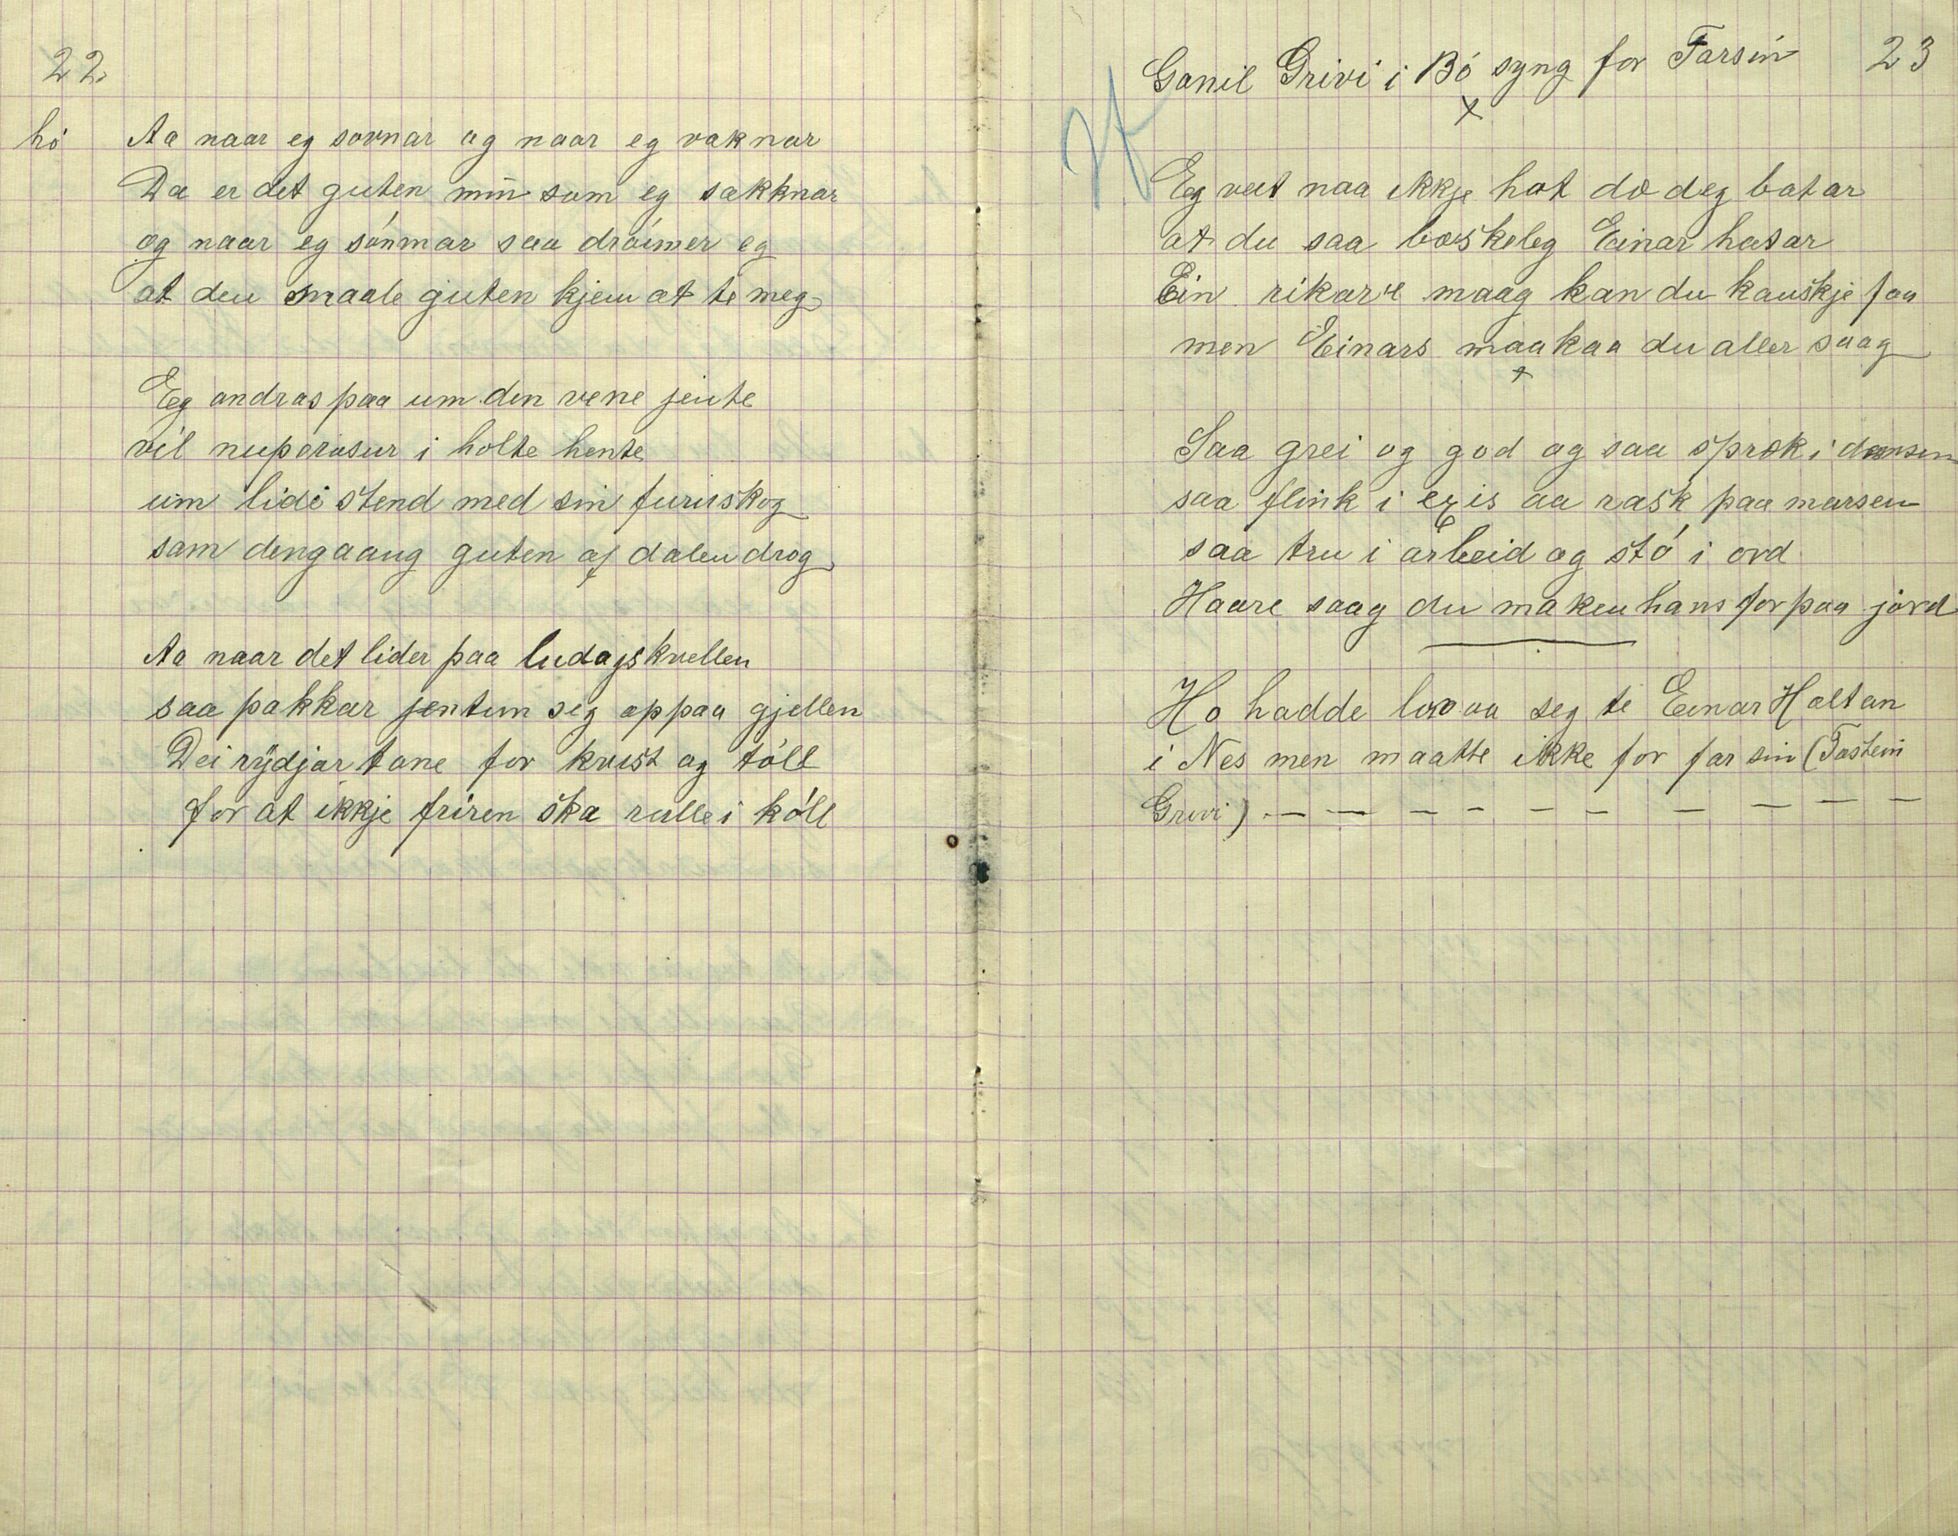 22
hó Aa naar eg sovnar og naar eg vaknar
Da er det guten min som eg sakknar
og naar eg sónmar saa dróimer eg
at den smaale guten kjem at te meg
Eg andras paa um den vene jente
vil nuperosur i holte hente
um lidi stend med sin furuskog
som dengaang guten af dalen drog
Aa naar det lider paa ludagskvellen
saa pakkar jentun seg oppaa gjellen
Dei rydjar tone for kvist og tóll
for at ikkje friren ska rulle i kóll
Gonil Grivi i Bó syng for Farsin 23
x
Eg veit naa ikkje hot do deg batar
at du saa boskeleg Einar hatar
Ein rikare maag kan du kanskje faa
men Einars maakaa du aller saag
x
Saa grei og god og saa sprok i dansen
saa flink i exis aa rask paa marsen
saa tru i arbeid og stó i ord
Haare saag du maken hans for paa jord
Ho hadde lovaa seg te Einar Haltan
i Nes men maatte ikke for far sin (Tostein
Grivi) — — — — — — — — — —